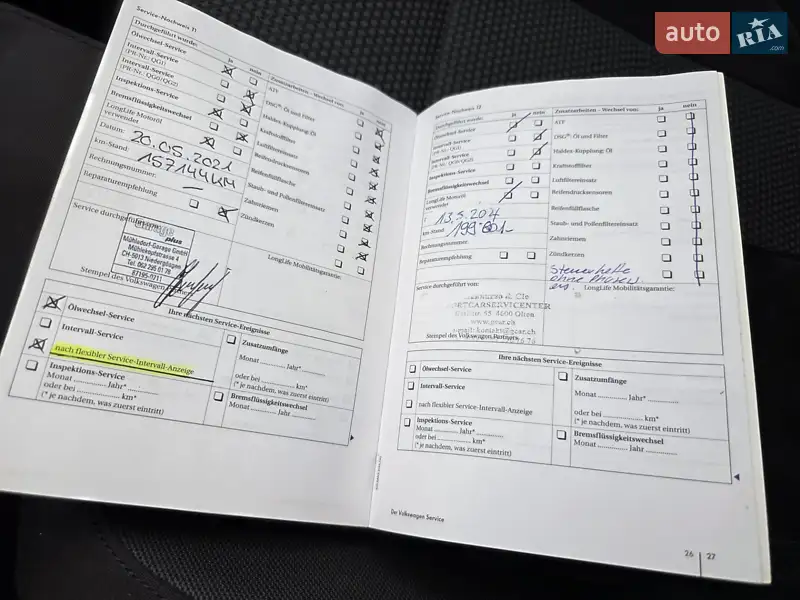 auto RIA .com
Service-Nachweis 11
Durchgeführt wurde:
ja nein
Ölwechsel-Service
Intervall-Service
(PR-Nr.: QG1)
Intervall-Service
(PR-Nr.: QG0/QG2)
Inspektions-Service
Bremsflüssigkeitswechsel
LongLife Motoröl
verwendet
Datum: 20.05.2021
km-Stand: 157144KM
Rechnungsnummer: —
Reparaturempfehlung
Zusatzarbeiten - Wechsel von: ja nein
ATF
DSG®: Öl und Filter
Haldex-Kupplung: Öl
Kraftstofffilter
Luftfiltereinsatz
Reifendrucksensoren
Reifenfüllflasche
Staub- und Pollenfiltereinsatz
Zahnriemen
Zündkerzen
LongLife Mobilitätsgarantie:
Service durchgeführt von:
garage plus
Mühledorf-Garage GmbH
Mühlekopfstrasse 4
CH-5013 Niedergösgen
Tel. 062 295 01 78
Stempel des Volkswagen
Ihre nächsten Service-Ereignisse
Ölwechsel-Service
Intervall-Service
nach flexibler Service-Intervall-Anzeige
Inspektions-Service
Monat Jahr*
oder bei km*
(* je nachdem, was zuerst eintritt)
Zusatzumfänge
Monat Jahr*
oder bei km*
(* je nachdem, was zuerst eintritt)
Bremsflüssigkeitswechsel
Monat Jahr
Service-Nachweis 12
Durchgeführt wurde: ja nein
Ölwechsel-Service
Intervall-Service
(PR-Nr.: QG1)
Intervall-Service
(PR-Nr.: QG0/QG2)
Inspektions-Service
Bremsflüssigkeitswechsel
LongLife Motoröl
verwendet
km-Stand:
Rechnungsnummer:
Reparaturempfehlung
Zusatzarbeiten - Wechsel von: ja nein
ATF
DSG®: Öl und Filter
Haldex-Kupplung: Öl
Kraftstofffilter
Luftfiltereinsatz
Reifendrucksensoren
Reifenfüllflasche
Staub- und Pollenfiltereinsatz
Zahnriemen
Zündkerzen
LongLife Mobilitätsgarantie:
Service durchgeführt von:
& Cie
4600 Olten
Stempel des Volkswagen Partners
Ihre nächsten Service-Ereignisse
Ölwechsel-Service
Intervall-Service
nach flexibler Service-Intervall-Anzeige
Inspektions-Service
Monat Jahr*
oder bei km*
(* je nachdem, was zuerst eintritt)
Zusatzumfänge
Monat Jahr*
oder bei km*
(* je nachdem, was zuerst eintritt)
Bremsflüssigkeitswechsel
Monat Jahr
Der Volkswagen Service
26 27